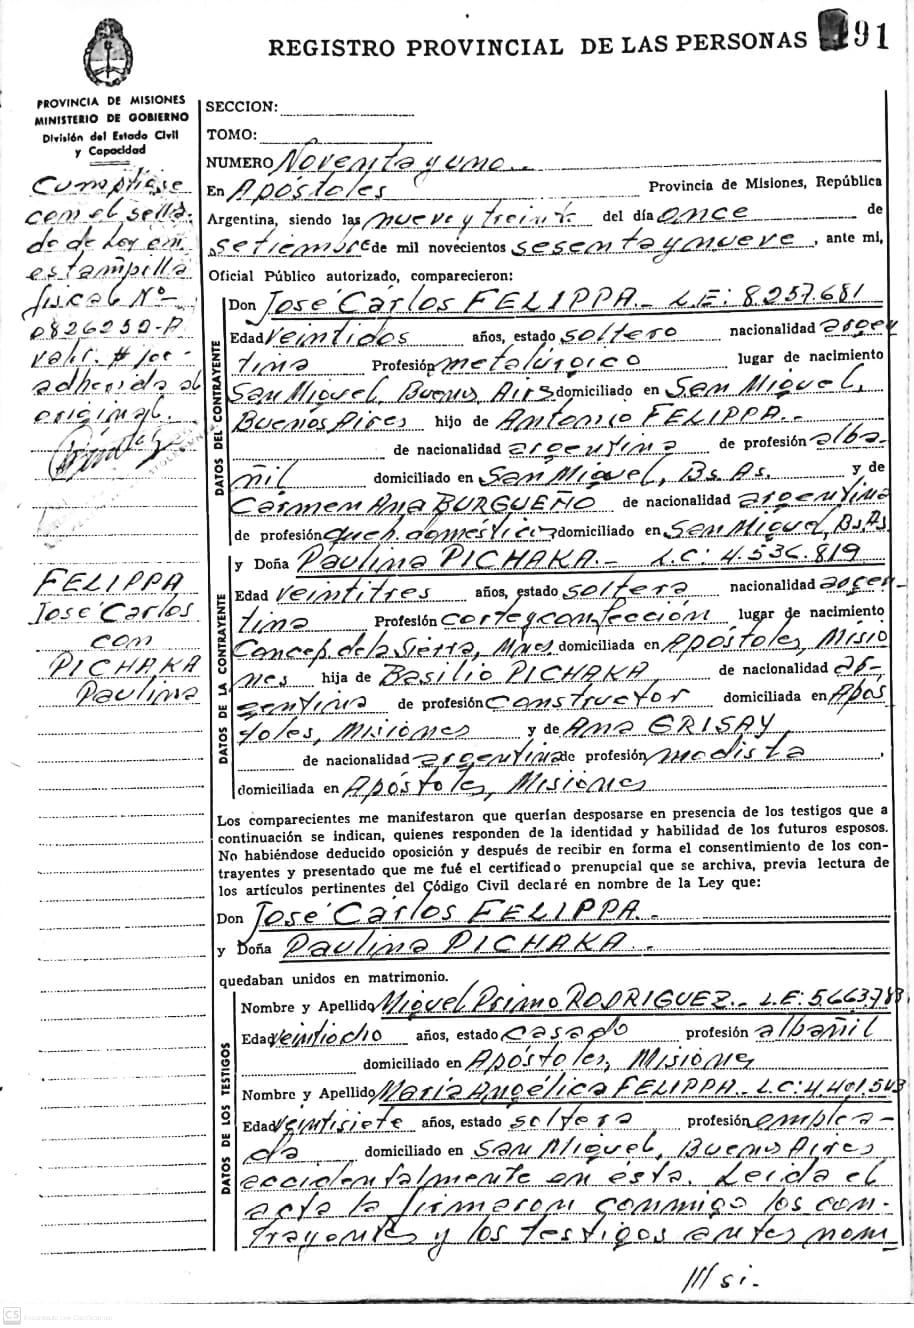 REGISTRO PROVINCIAL DE LAS PERSONAS 191
PROVINCIA DE MISIONES
MINISTERIO DE GOBIERNO
División del Estado Civil
y Capacidad
Cumpliose
con el sella-
do de Ley en
estampilla
fiscal Nº
0826250-A
valor
adherida al
original.
FELIPPA
José Carlos
con
PICHAKA
Paulina
SECCION:
TOMO:
NUMERO Noventa y uno
En Apóstoles Provincia de Misiones, República
Argentina, siendo las nueve y treinta del día once de
setiembre de mil novecientos sesenta y nueve, ante mi,
Oficial Público autorizado, comparecieron:
DATOS DEL CONTRAYENTE
Don José Carlos FELIPPA.- L.E: 8.257.681
Edad veintidos años, estado soltero nacionalidad argen
tina Profesión metalúrgico lugar de nacimiento
San Miguel, Buenos Aires domiciliado en San Miguel,
Buenos Aires hijo de Antonio FELIPPA.-
de nacionalidad argentina de profesión alba-
ñil domiciliado en San Miguel, Bs. As. y de
Cármen Ana BURGUEÑO de nacionalidad argentina
de profesión queh. domésticos domiciliado en San Miguel, Bs As.
DATOS DE LA CONTRAYENTE
y Doña Paulina PICHAKA.- L.C: 4.536.819
Edad veintitres años, estado soltera nacionalidad argen-
tina Profesión corte y confección lugar de nacimiento
Concep. de la Sierra, Mnes domiciliada en Apóstoles, Misio
nes hija de Basilio PICHAKA de nacionalidad ar-
gentina de profesión constructor domiciliada en Após
toles, Misiones y de Ana GRISAY
de nacionalidad argentina de profesión modista,
domiciliada en Apóstoles, Misiones
Los comparecientes me manifestaron que querían desposarse en presencia de los testigos que a
continuación se indican, quienes responden de la identidad y habilidad de los futuros esposos.
No habiéndose deducido oposición y después de recibir en forma el consentimiento de los con-
trayentes y presentado que me fué el certificado prenupcial que se archiva, previa lectura de
los artículos pertinentes del Código Civil declaré en nombre de la Ley que:
Don José Carlos FELIPPA.-
y Doña Paulina PICHAKA.-
quedaban unidos en matrimonio.
DATOS DE LOS TESTIGOS
Nombre y Apellido Miguel Primo RODRIGUEZ.- L.E: 5.663.783
Edad veintiocho años, estado casado profesión albañil
domiciliado en Apóstoles, Misiones
Nombre y Apellido María Angélica FELIPPA.- L.C: 4.401.543
Edad veintisiete años, estado soltera profesión emplea-
da domiciliado en San Miguel, Buenos Aires
accidentalmente en ésta. Leida el
acta la firmaron conmigo los con-
trayentes y los testigos antes nom
///si.
CS